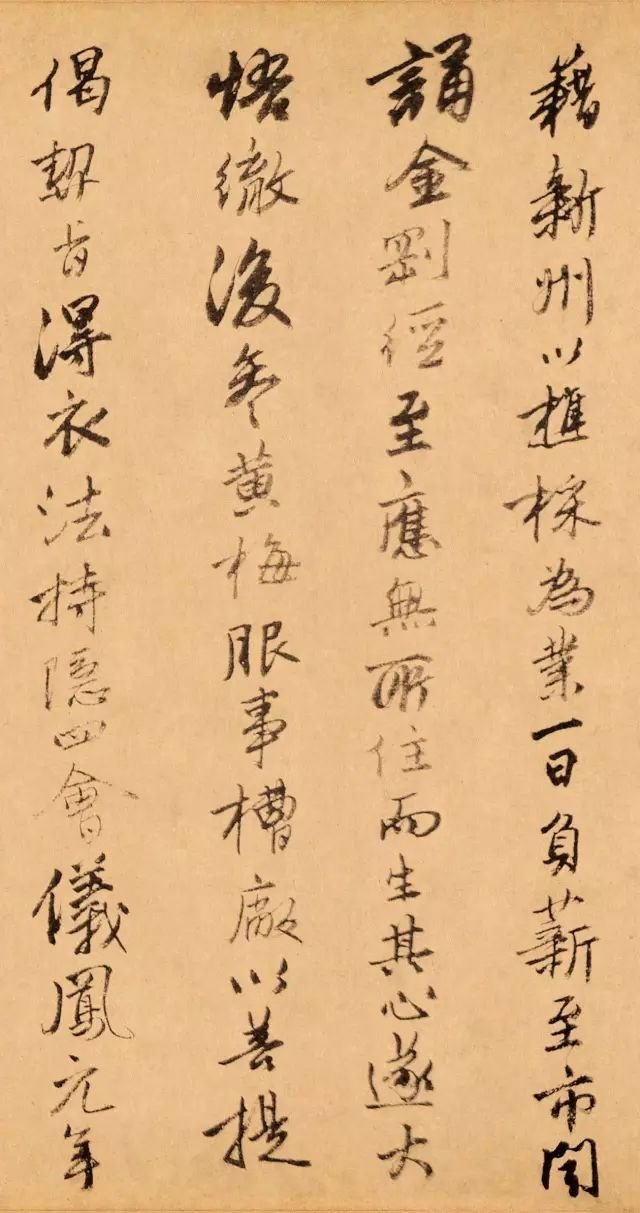 藉新州以樵採為業一日負薪至市聞
誦金剛經至應無所住而生其心遂大
悟徹後參黃梅服事槽廠以菩提
偈契旨得衣法持隱四會儀鳳元年